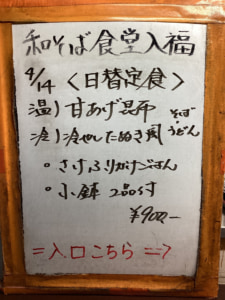 和そば食堂入福
4/14 <日替定食>
温) 甘あげ昆布
そば・うどん
冷) 冷やしたぬき風
。さけふりかけごはん
。小鉢 2品付
¥900,-
=入口こちら=>